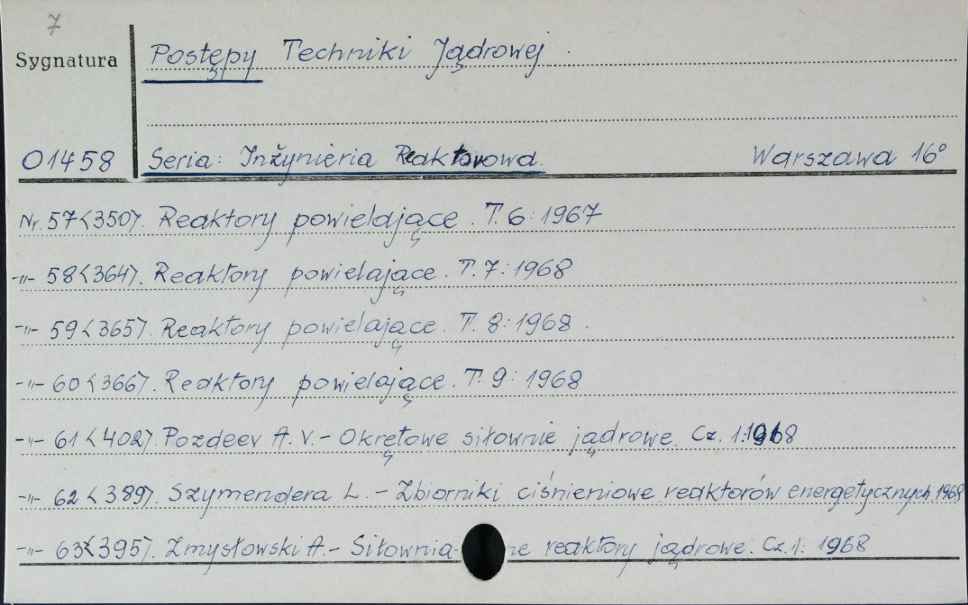 7
Sygnatura
Postępy Techniki Jądrowej.
O1458
Seria: Inżynieria Reaktorowa. Warszawa 16°
Nr. 57<350>. Reaktory powielające. T. 6: 1967
-"- 58<364>. Reaktory powielające. T. 7: 1968
-"- 59<365>. Reaktory powielające. T. 8: 1968.
-"- 60<366>. Reaktory powielające. T. 9: 1968
-"- 61<402>. Pozdeev A. V. - Okrętowe siłownie jądrowe. Cz. 1: 1968
-"- 62<389>. Szymendera L. - Zbiorniki ciśnieniowe reaktorów energetycznych 1968
-"- 63<395>. Zmysłowski A. - Siłownia- ne reaktory jądrowe. Cz. 1: 1968